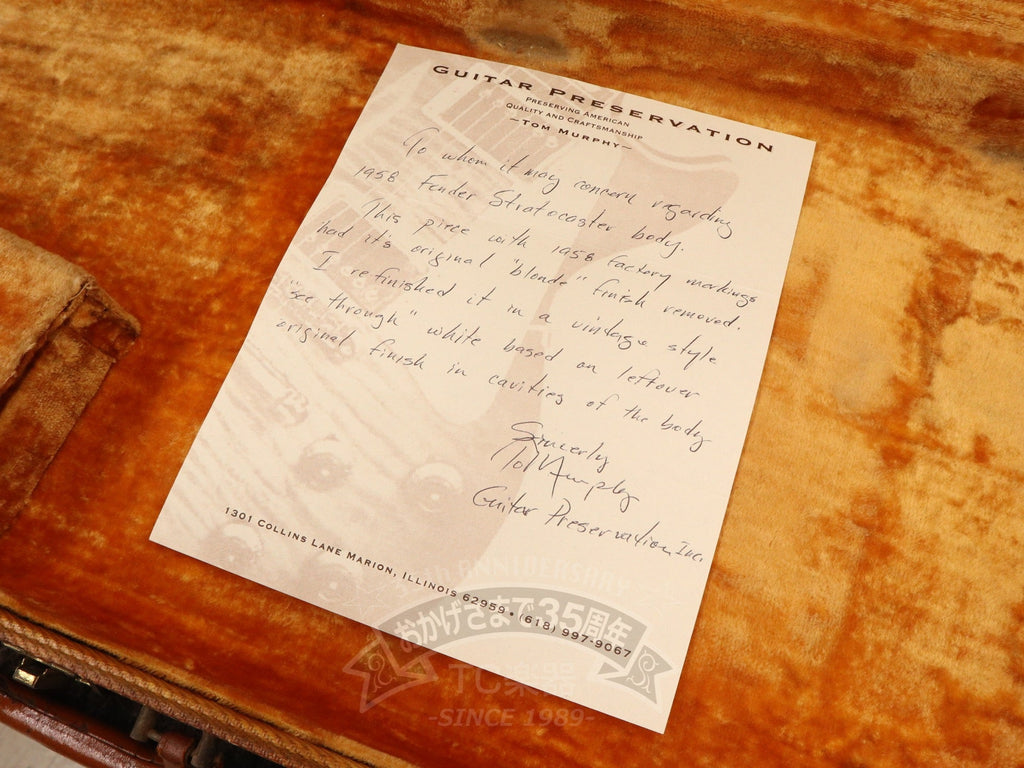 GUITAR PRESERVATION
PRESERVING AMERICAN
QUALITY AND CRAFTSMANSHIP
—TOM MURPHY—
To whom it may concern regarding
1958 Fender Stratocaster body.
This piece with 1958 factory markings
had it's original "blonde" finish removed.
I refinished it in a vintage style
"see through" white based on leftover
original finish in cavities of the body
Sincerly
Tom Murphy
Guitar Preservation, Inc.
1301 COLLINS LANE MARION, ILLINOIS 62959 • (618) 997-9067
ANNIVERSARY
おかげさまで35周年
TC楽器
-SINCE 1989-